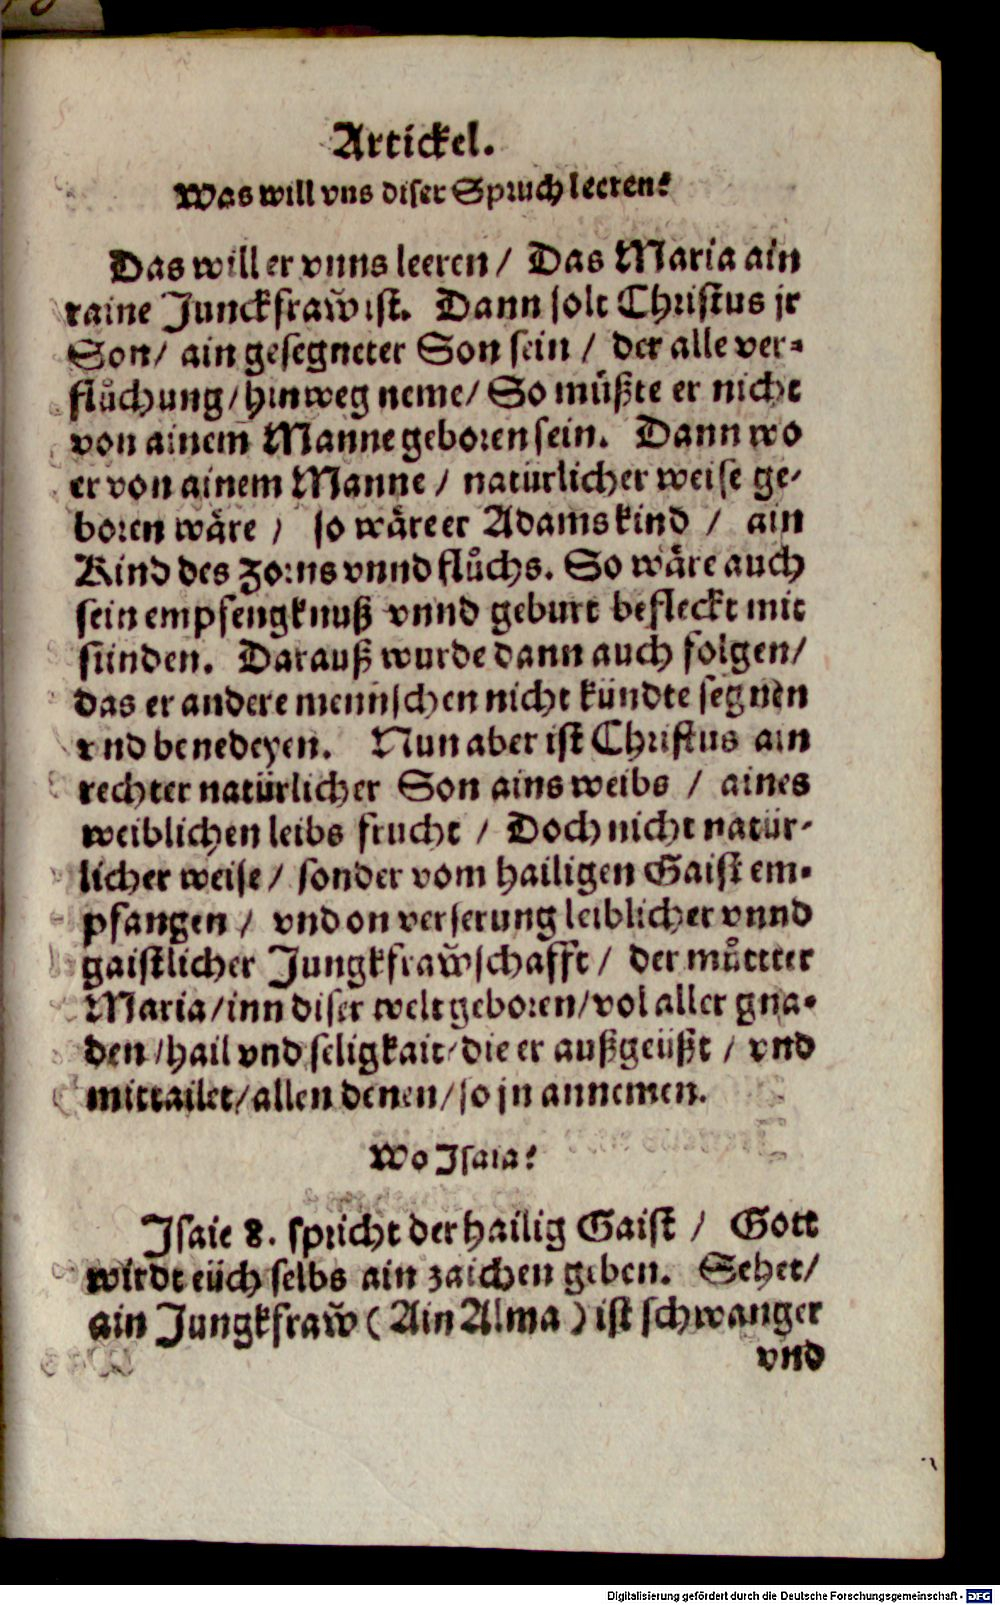 Artickel.
Was will vns diser Spruch leeren?
Das will er vnns leeren / Das Maria ain
raine Junckfraw̃ ist. Dann solt Christus jr
Son / ain gesegneter Son sein / der alle ver-
flůchung / hinweg neme / So müßte er nicht
von ainem Manne geboren sein. Dann wo
er von ainem Manne / natürlicher weise ge-
boren wäre / so wäre er Adams kind / ain
Kind des zorns vnnd flůchs. So wäre auch
sein empfengknuß vnnd geburt befleckt mit
sünden. Darauß wurde dann auch folgen /
das er andere mennschen nicht kündte segnen
vnd benedeyen. Nun aber ist Christus ain
rechter natürlicher Son ains weibs / aines
weiblichen leibs frucht / Doch nicht natür-
licher weise / sonder vom hailigen Gaist em-
pfangen / vnd on verserung leiblicher vnnd
gaistlicher Jungkfraw̃schafft / der můttter
Maria / inn diser welt geboren / vol aller gna-
den / hail vnd seligkait / die er außgeüßt / vnd
mittailet / allen denen / so jn annemen.
Wo Isaia?
Isaie 8. spricht der hailig Gaist / Gott
wirdt eüch selbs ain zaichen geben. Sehet /
ain Jungkfraw̃ (Ain Alma) ist schwanger
vnd
Digitalisierung gefördert durch die Deutsche Forschungsgemeinschaft - DFG